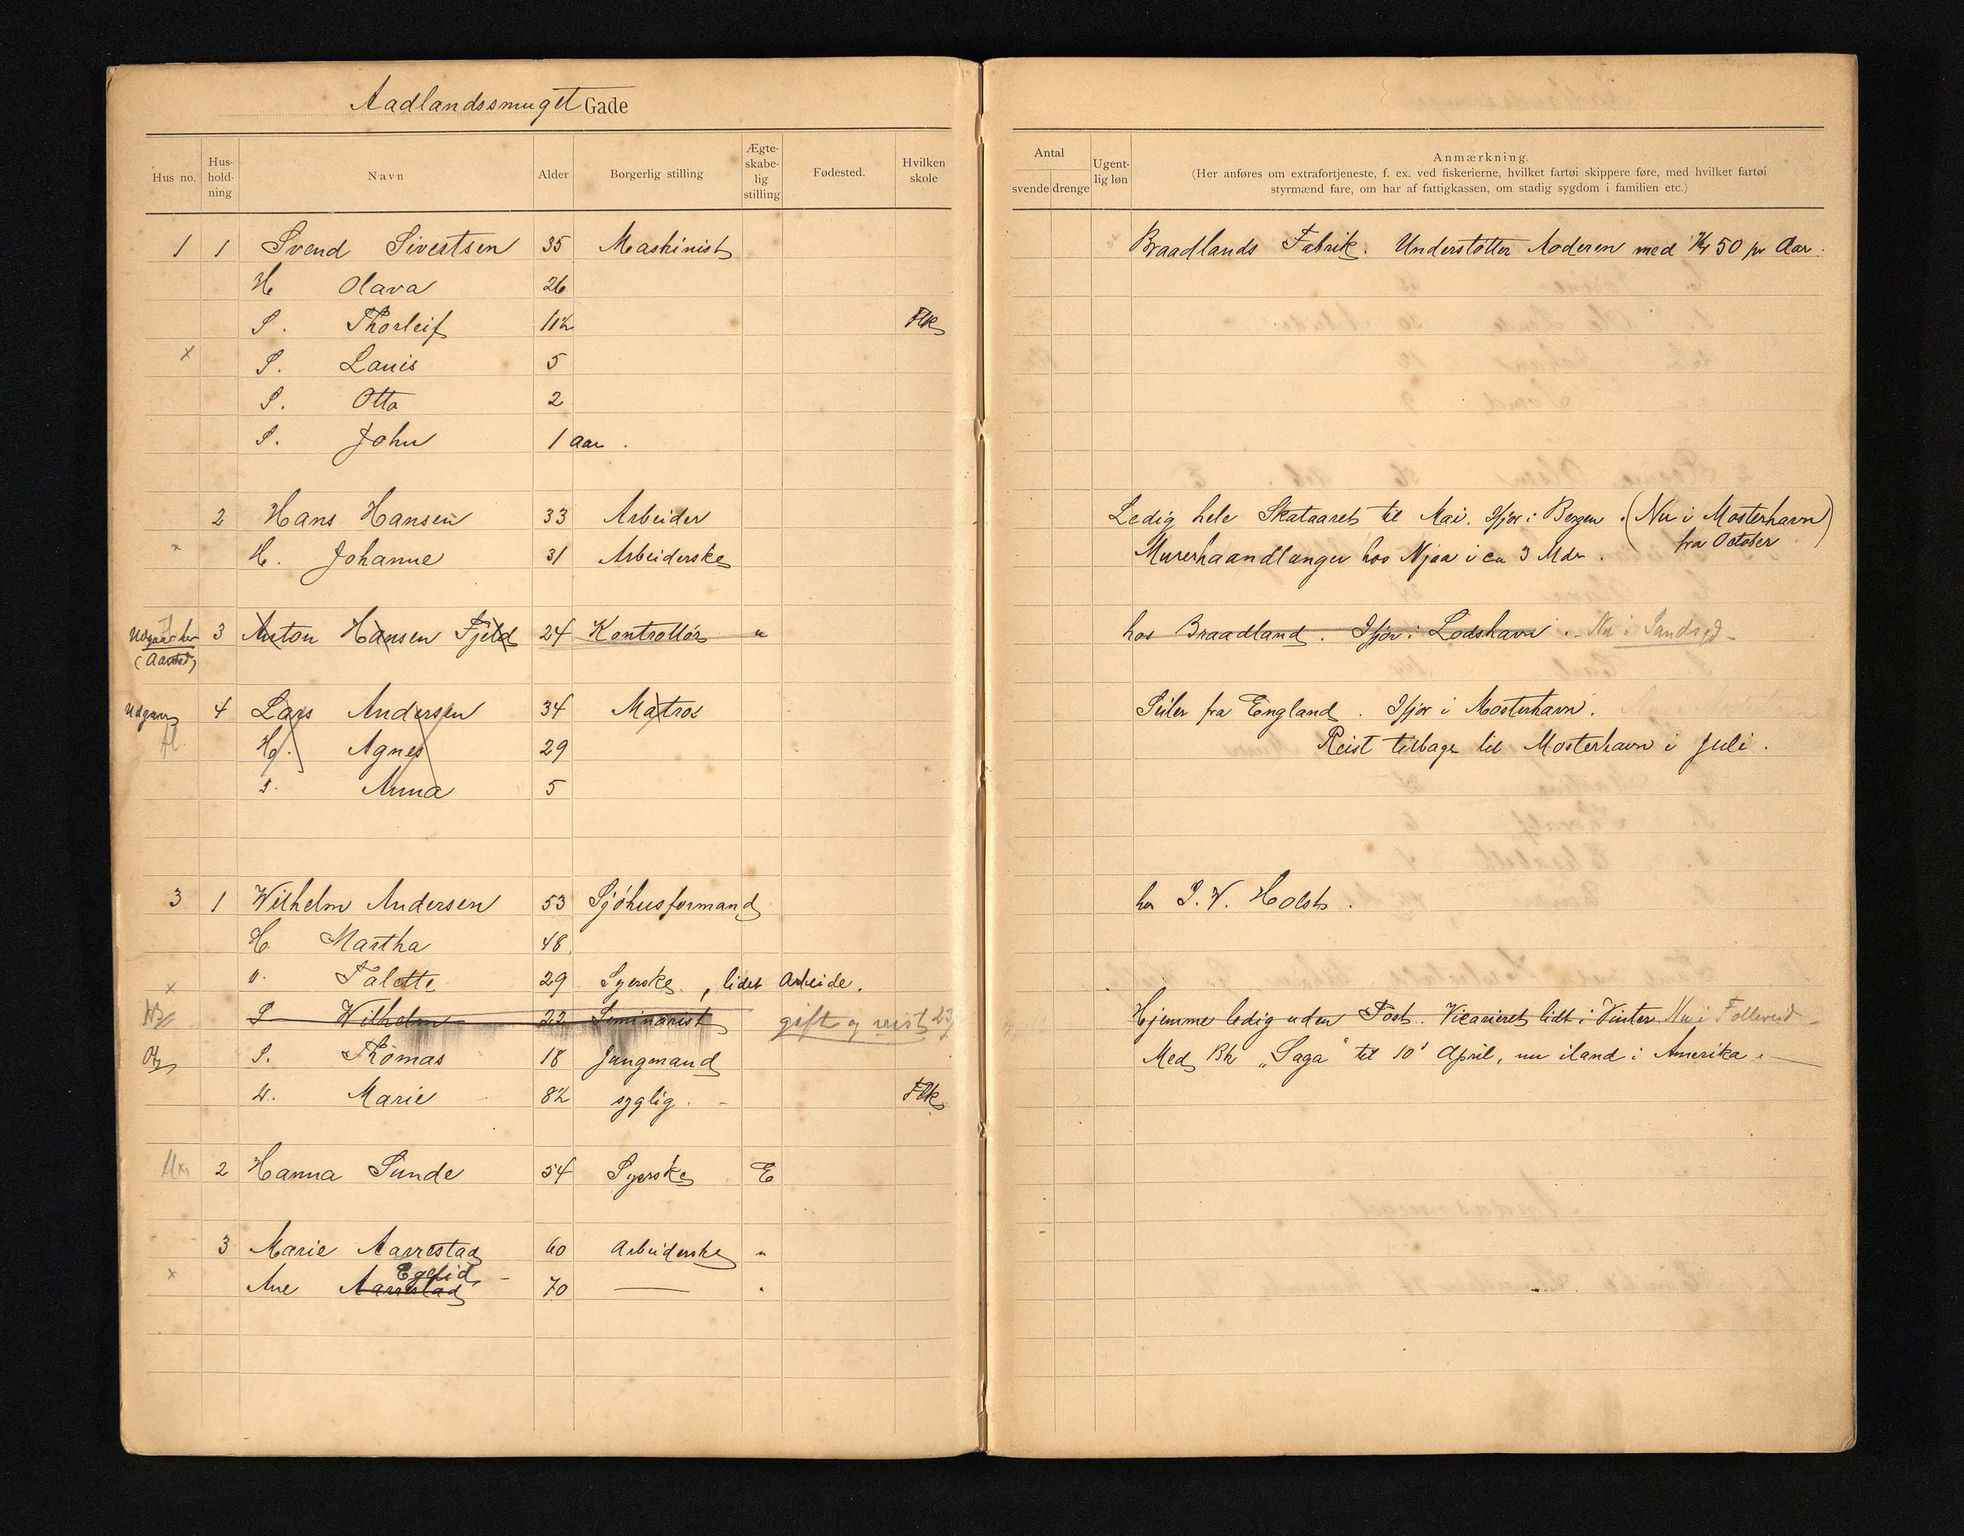 Aadlandssmuget Gade
Hus no. Hus-holdning Navn Alder Borgerlig stilling Ægte-skabe-lig stilling Fødested. Hvilken skole
Antal svende drenge Ugent-lig løn Anmærkning.
(Her anføres om extrafortjeneste, f. ex. ved fiskerierne, hvilket fartøi skippere føre, med hvilket fartøi
styrmænd fare, om har af fattigkassen, om stadig sygdom i familien etc.)
1 1 Svend Sivertsen 35 Maskinist Braadlands Fabrik. Understøtter Moderen med Kr 50 pr Aar.
H Olava 26
S. Thorleif 11½ Flk
x S. Lauis 5
S. Otto 2
S. John 1 aar.
2 Hans Hansen 33 Arbeider Ledig hele Skataaret til Mai. Ifjor i Bergen. (Nu i Mosterhavn
fra October)
x H. Johanne 31 Arbeiderske Murerhaandlanger hos Njaa i ca 3 Mdr.
3 Anton Hansen Fjeld 24 Kontrollør " hos Braadland. Ifjor i Lodshavn. Nu i
Udgaar 4 Lars Andersen 34 Matros Seiler fra England. Ifjor i Mosterhavn.
H. Agnes 29 Reist tilbage til Mosterhavn i Juli.
D. Anna 5
3 1 Wilhelm Andersen 53 Sjøhusformand hos P. W. Holst.
H Martha 48
x D. Talette 29 Syerske, lidet Arbeide.
S Wilhelm 22 Seminarist gift og reist Hjemme ledig uden Post. Vicarieret lidt i Vinter Nu i
S. Thomas 18 Jungmand Med Bk "Saga" til 10' April, nu iland i Amerika.
D. Marie 8½ syglig. Flk
2 Hanna Sunde 54 Syerske E
3 Marie Aarrestad 60 Arbeiderske "
Egelid
x Ane Aarrestad 70 — "